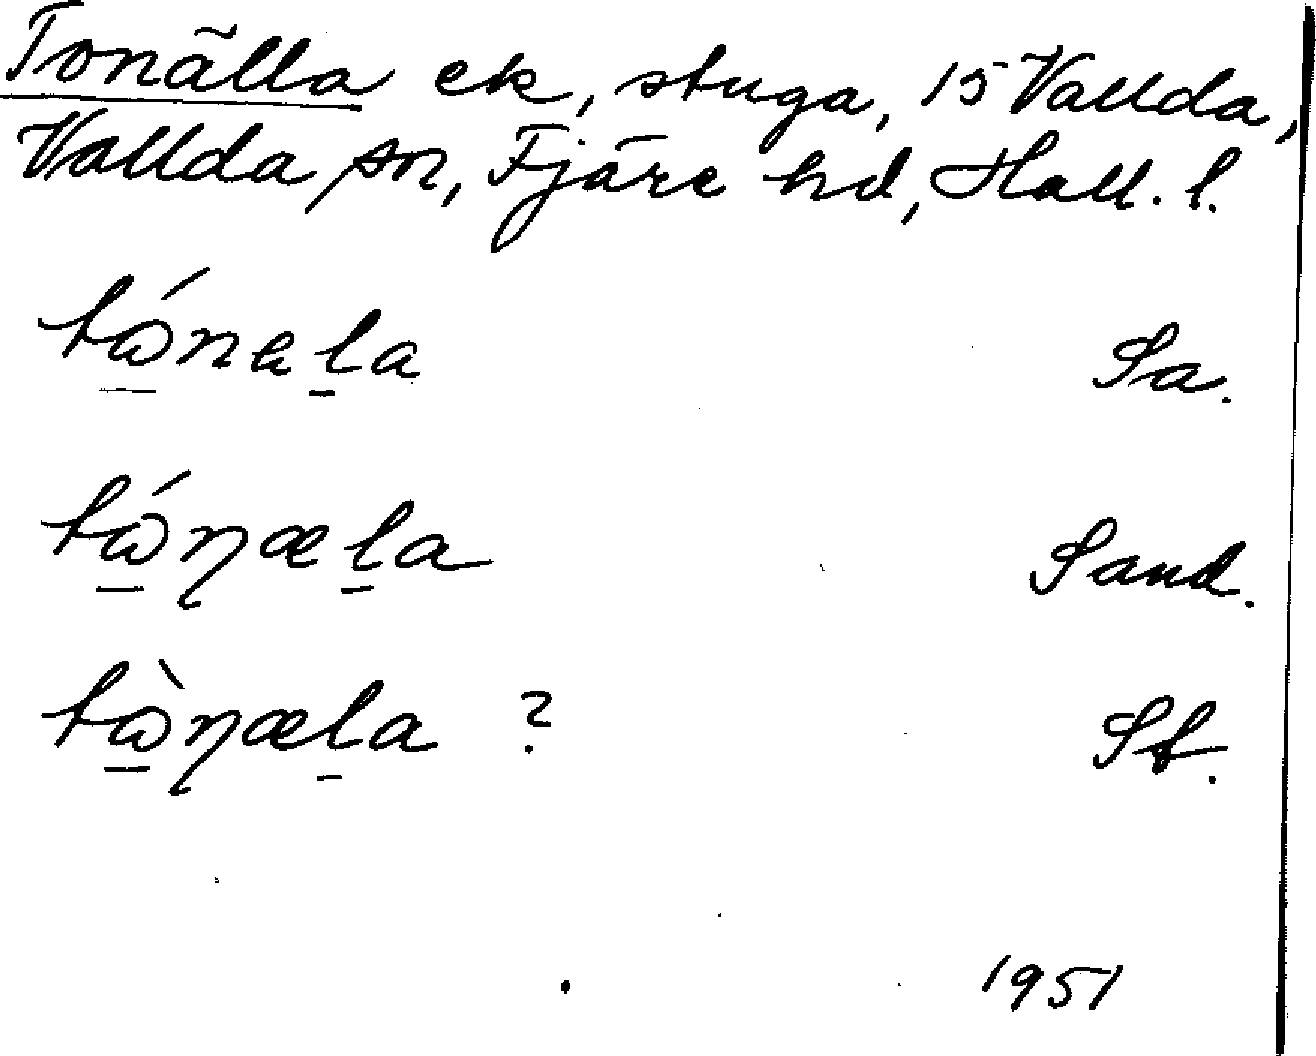 Tonälla ek, stuga, 15 Vallda,
Vallda sn, Fjäre hd, Hall. l.
tώ̲nel̲a Sa.
tώ̲ɳæl̲a Sand.
tὼ̲ɳæl̲a ? St.
1951